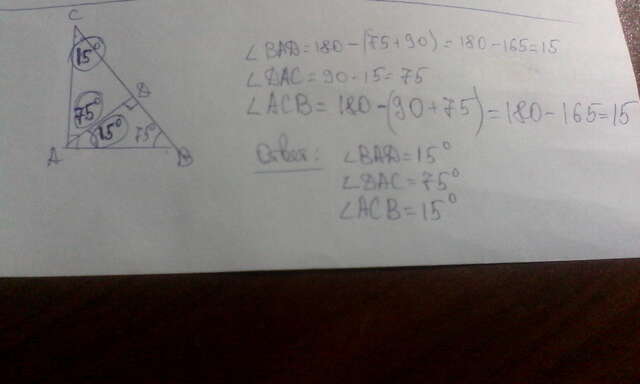 C
15°
75°
D
15°
75°
A
B
∠BAD = 180 - (75 + 90) = 180 - 165 = 15
∠DAC = 90 - 15 = 75
∠ACB = 180 - (90 + 75) = 180 - 165 = 15
Ответ: ∠BAD = 15°
∠DAC = 75°
∠ACB = 15°